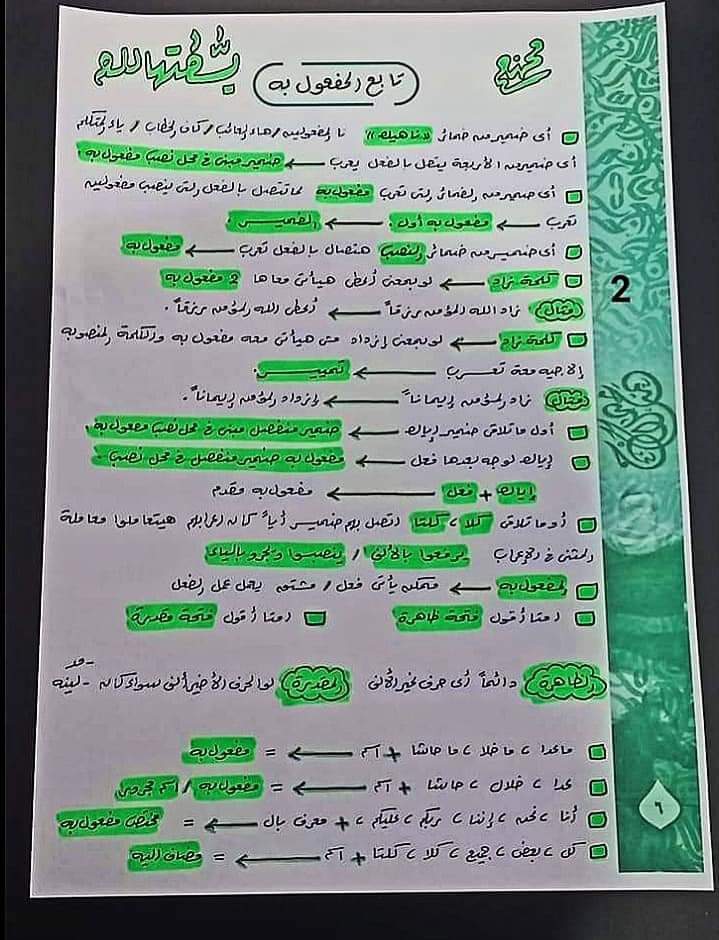 تابع المفعول به
□ أى ضمير من ضمائر «ناهيك» نا المفعولين / هاء الغائب / كاف الخطاب / ياء المتكلم
أى ضمير من الأربعة يتصل بالفعل يعرب ← ضمير مبنى فى محل نصب مفعول به.
□ أى ضمير من الضمائر التى تعرب مفعول به لما تتصل بالفعل التى ينصب مفعولين
تعرب ← مفعول به أول. ← الضمير.
□ أى ضمير من ضمائر النصب هتتصل بالفعل تعرب ← مفعول به
□ كلمة زاد ← لو بمعنى أعطى هيأتى معاها 2 مفعول به
مثال زاد الله المؤمن رزقاً ← أعطى الله المؤمن رزقاً.
□ كلمة زاد ← لو بمعنى إزداد مش هيأتى معه مفعول به والكلمة المنصوبة
إلا جيه معة تعرب ← تمييز.
مثال زاد المؤمن إيماناً ← إزداد المؤمن إيماناً.
□ أول ما تلاقى ضمير إياك ← ضمير منفصل مبنى فى محل نصب مفعول به.
□ إياك لو جه بعدها فعل ← مفعول به ضمير منفصل فى محل نصب.
إياك + فعل ← مفعول به مقدم
□ أو ما تلاقى كلا، كلتا اتصل بهم ضمير أياً كان إعرابهم هيتعاملوا معاملة
المثنى فى الإعراب يرفعوا بالألف / ينصبوا ويجروا بالياء
□ المفعول به ← ممكن يأتى فعل / مشتق يعمل عمل الفعل
□ امتا أقول فتحة ظاهرة □ امتا أقول فتحة مقدرة
الظاهرة دائماً أى حرف غير الألف المقدرة لو الحرف الأخير ألف سواء كان - مد - لينه
□ ماعدا، ماخلا، ما حاشا + اسم ← = مفعول به
□ عدا، خلال، حاشا + اسم ← = مفعول به / اسم مجرور
□ أنا، نحن، إننا، بكم، عليكم، + معرف بال ← = مختص مفعول به
□ كل، بعض، جميع، كلا، كلتا + اسم ← = مضاف إليه
2
٦